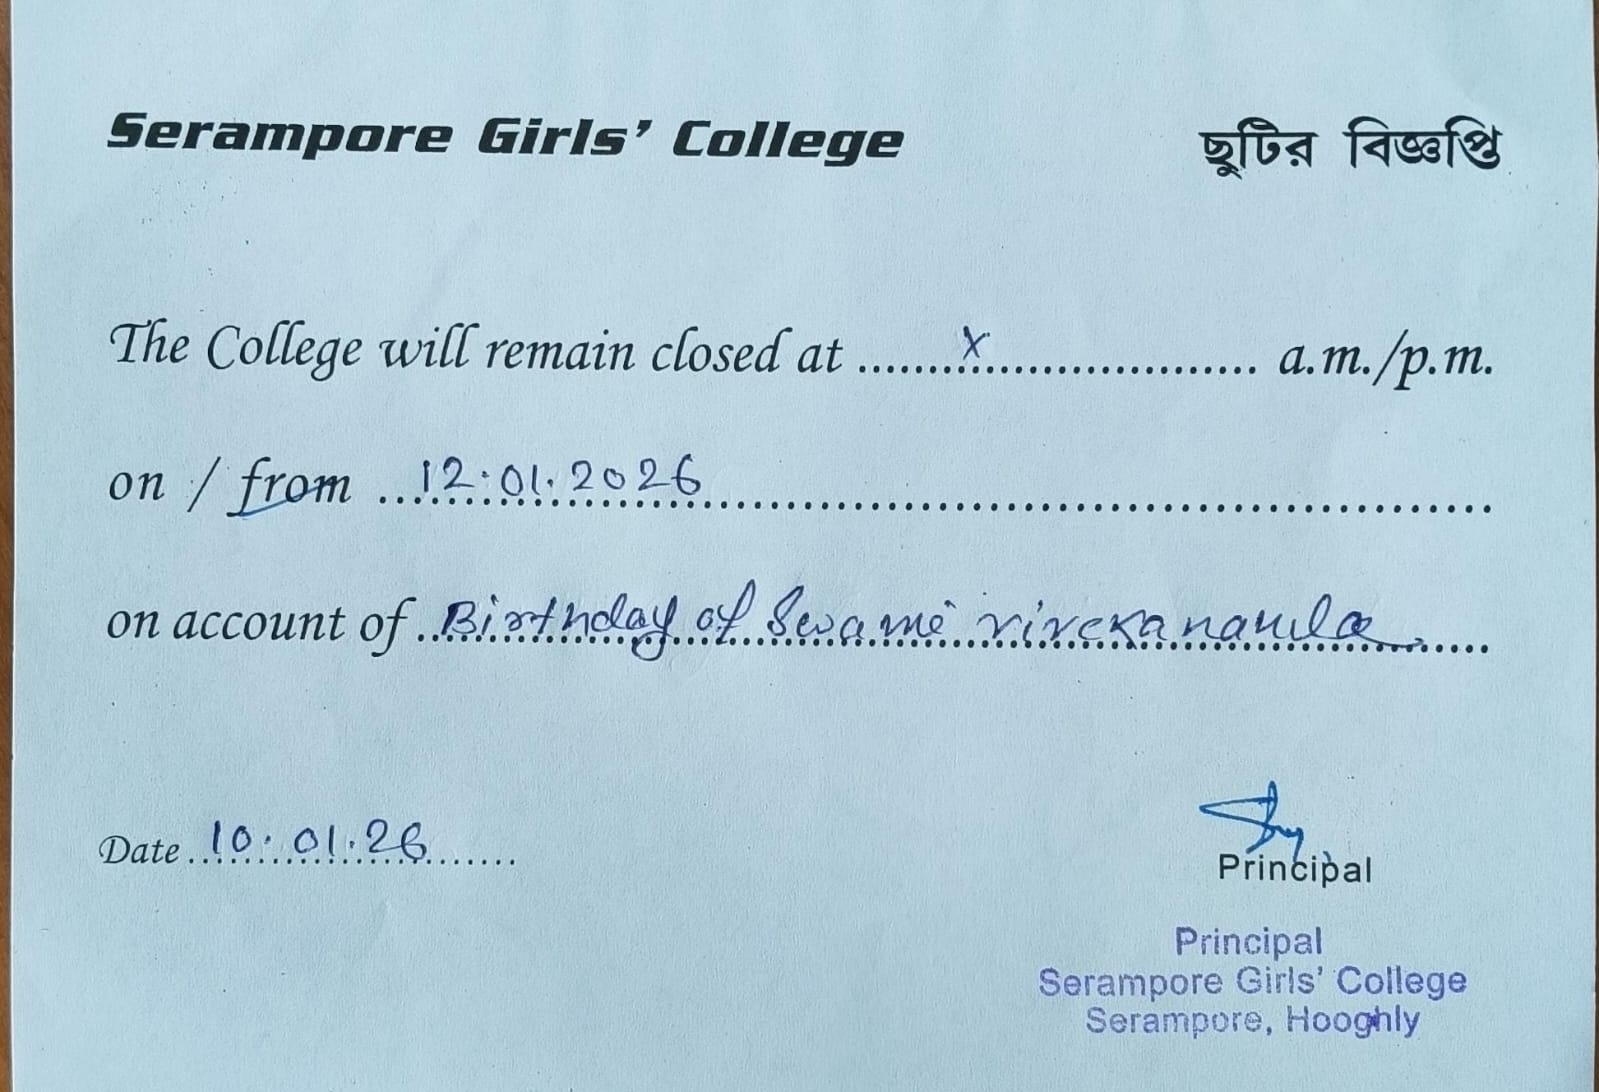 Serampore Girls' College ছুটির বিজ্ঞপ্তি
The College will remain closed at ......x.............................. a.m./p.m.
on / from ...12.01.2026.................................................
on account of ..Birthday of Swami Vivekananda......
Date ..10.01.26........
Principal
Principal
Serampore Girls' College
Serampore, Hooghly